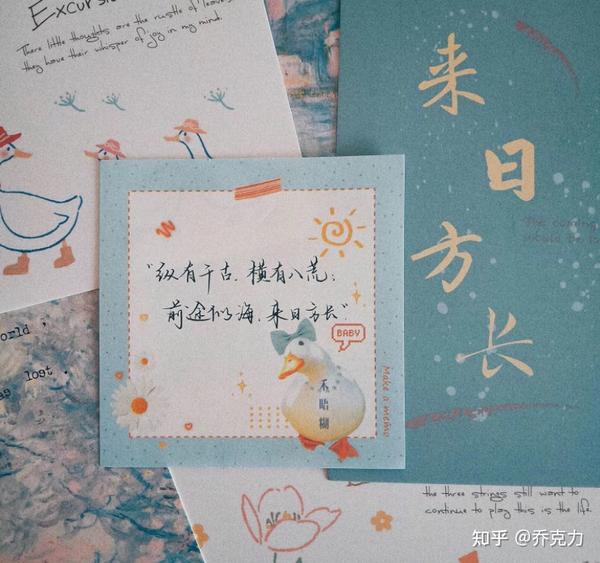 There little thoughts are the rustle of leaves
they have their whisper of joy in my mind.
来
日
方
长
The coming
would be
“纵有千古，横有八荒；
前途似海，来日方长”
BABY
不
糊
Make a memo
orld ,
lost .
the three strings still want to
continue to play this is the life
知乎 @乔克力